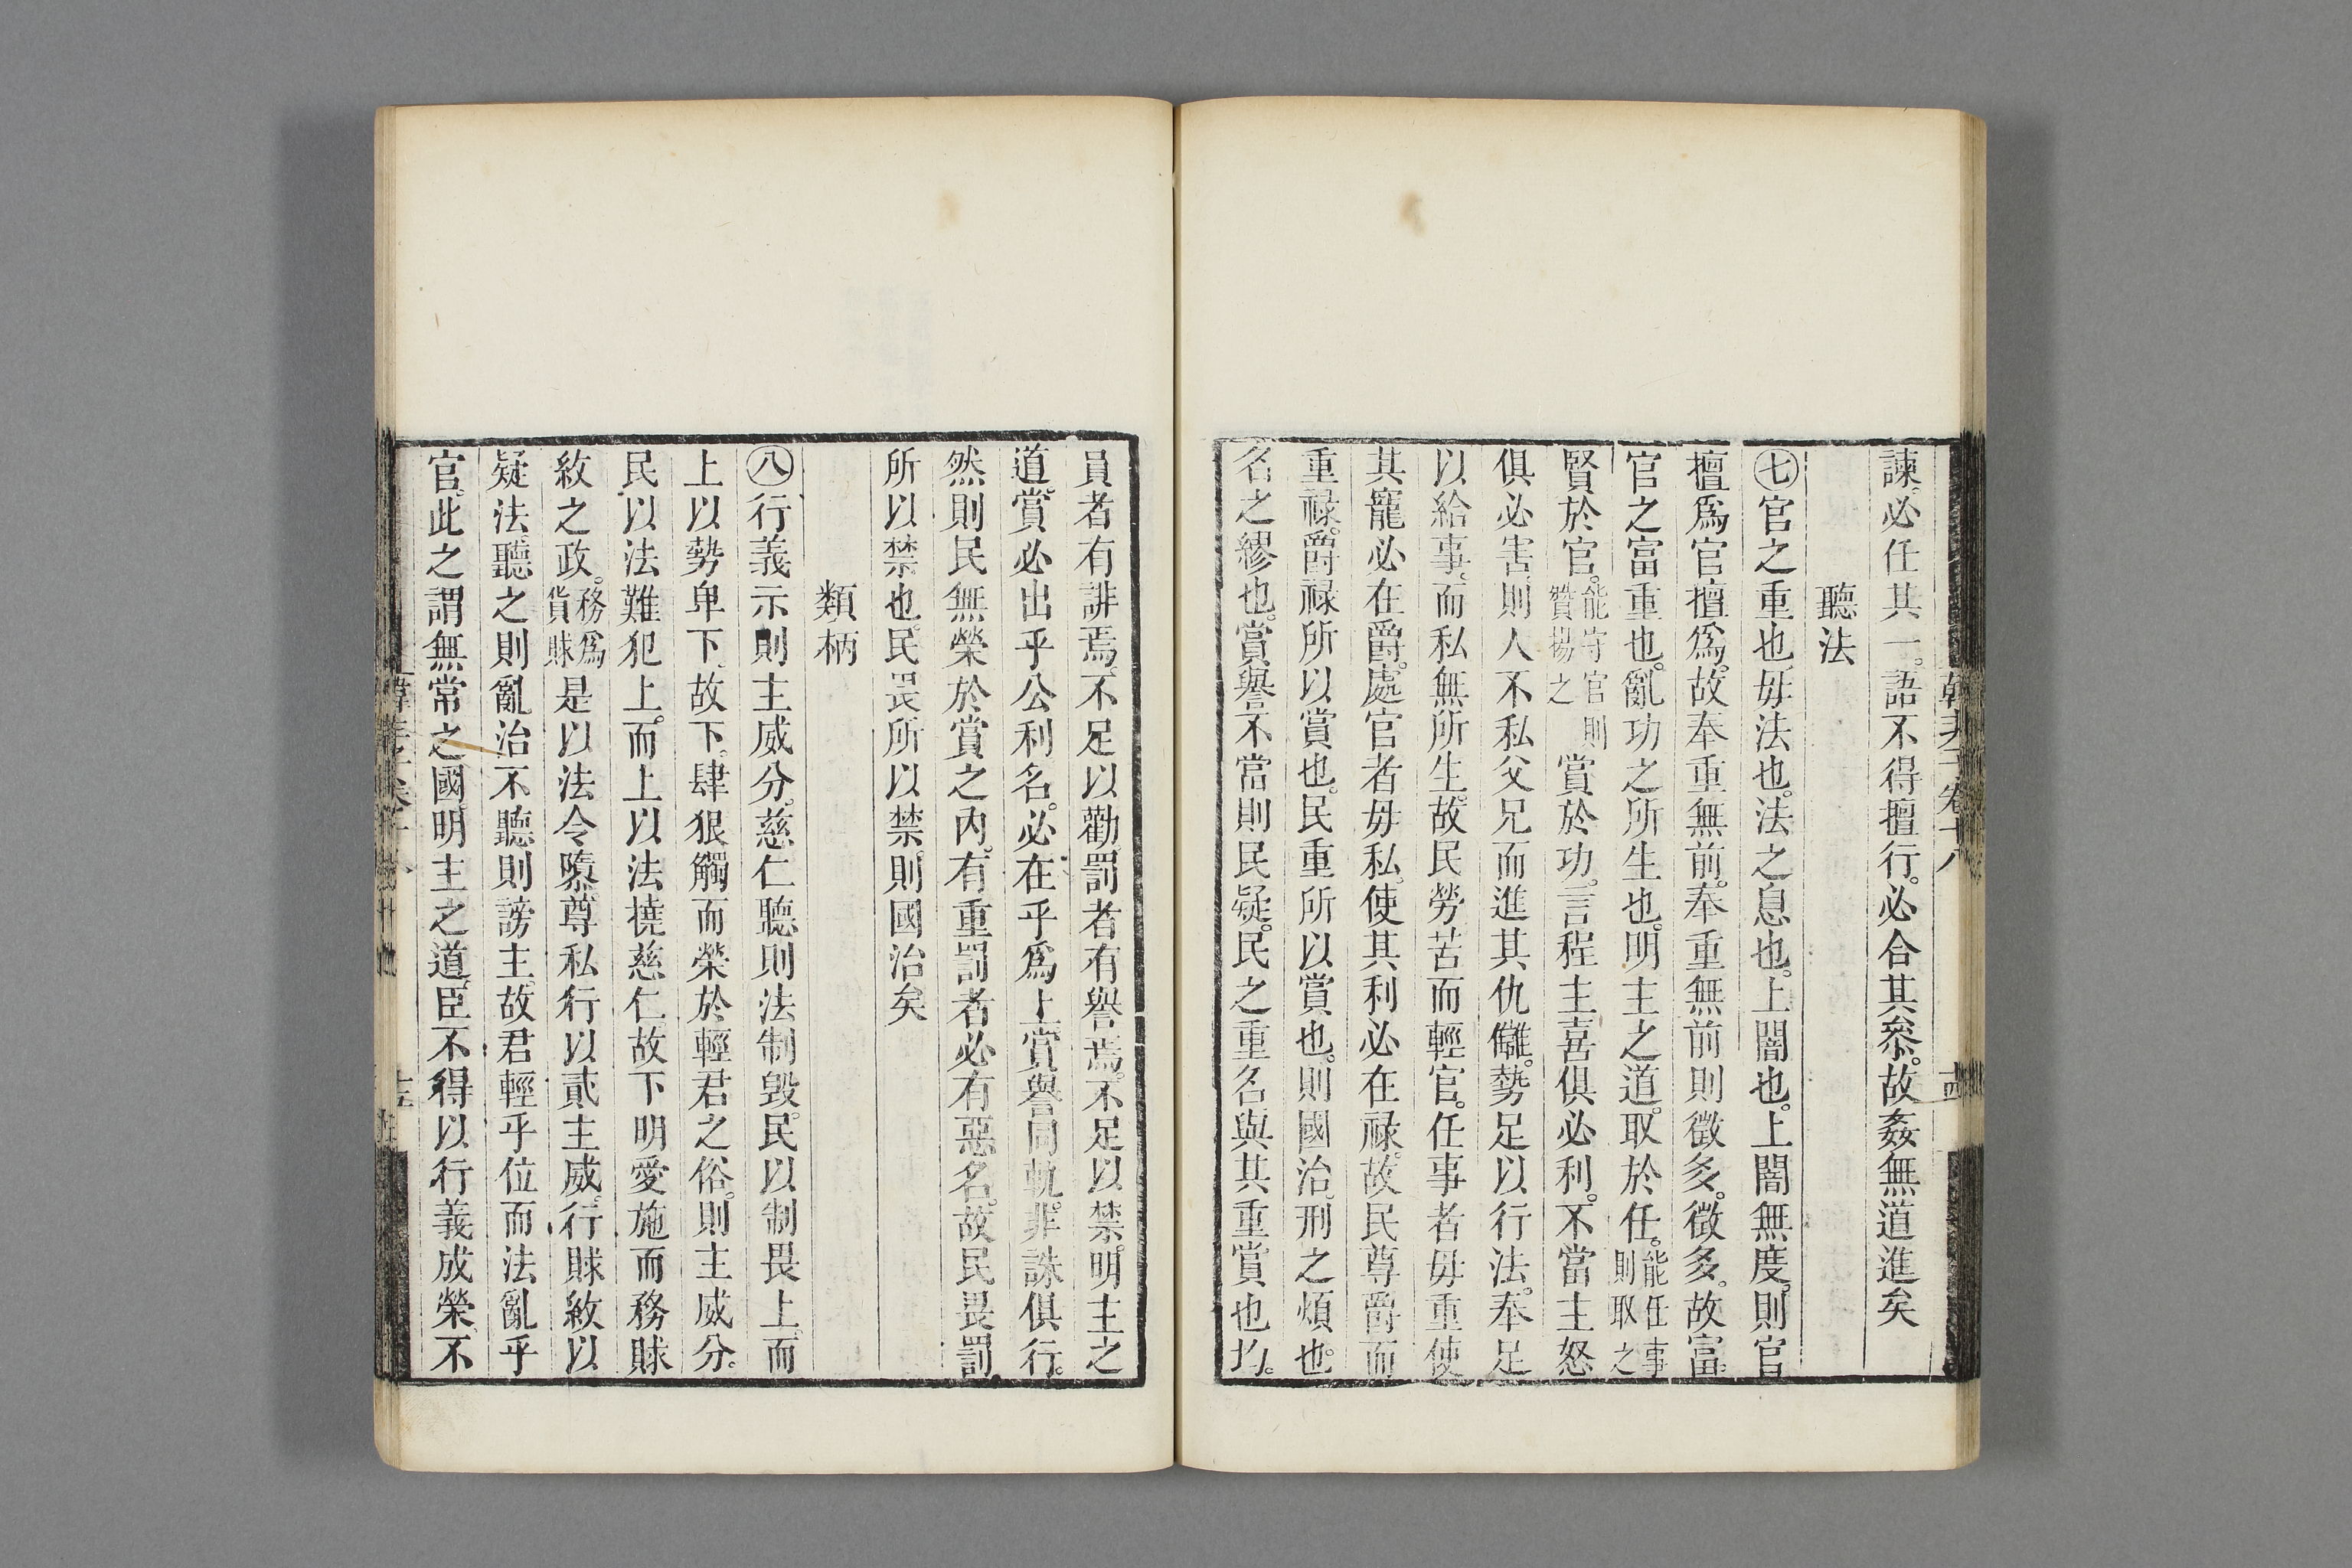 韓非子卷十八
十四
諫。必任其一。語不得擅行。必合其參。故姦無道進矣
聽法
七官之重也毋法也。法之息也。上闇也。上闇無度。則官
擅爲官擅爲。故奉重無前。奉重無前則徵多。徵多。故富。
官之富重也。亂功之所生也。明主之道。取於任。能任事則取之
賢於官。能守官則贊揚之賞於功。言程主喜俱必利。不當主怒
俱必害。則人不私父兄而進其仇讎。勢足以行法。奉足
以給事。而私無所生。故民勞苦而輕官。任事者毋重使
其寵必在爵。處官者毋私。使其利必在祿。故民尊爵而
重祿。爵祿所以賞也。民重所以賞也。則國治。刑之煩也。
名之繆也。賞譽不當則民疑。民之重名與其重賞也均。
員者有誹焉。不足以勸。罰者有譽焉。不足以禁。明主之
道。賞必出乎公利。名。必在乎爲上。賞譽同軌。非誅俱行。
然則民無榮於賞之內。有重罰者必有惡名。故民畏罰
所以禁也。民畏所以禁。則國治矣
類柄
八行義示則主威分。慈仁聽則法制毀。民以制畏上。而
上以勢卑下。故下肆狠觸而榮於輕君之俗。則主威分。
民以法難犯上。而上以法撓慈仁。故下明愛施而務賕
紋之政。務爲貨賕是以法令隳。尊私行以貳主威。行賕紋以
疑法。聽之則亂治。不聽則謗主。故君輕乎位而法亂乎
官。此之謂無常之國。明主之道。臣不得以行義成榮。不